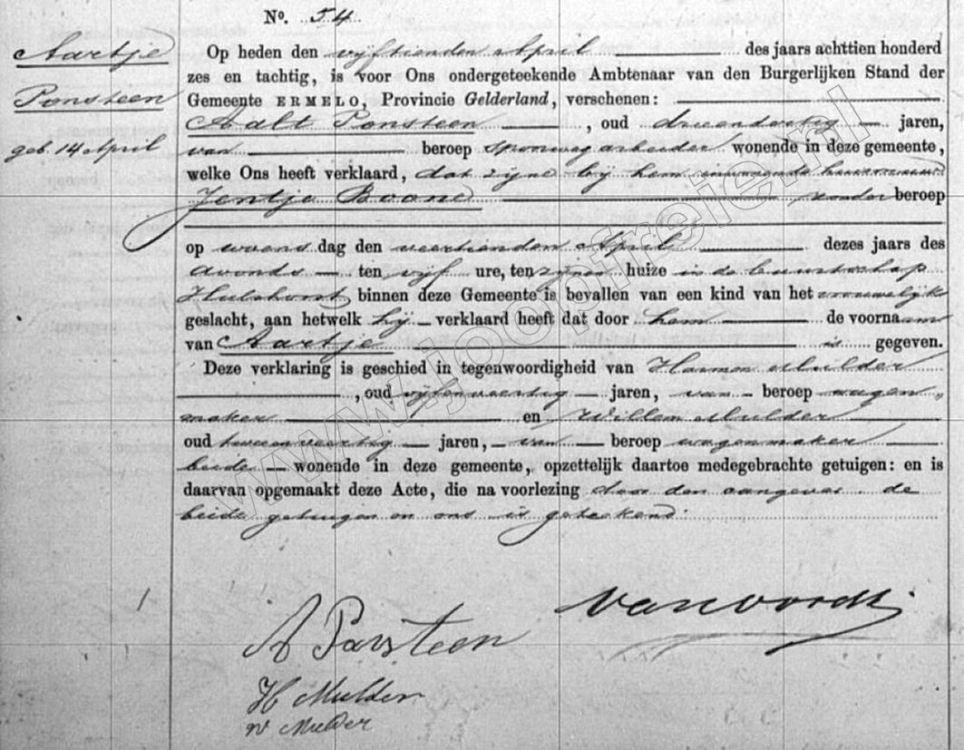 No. 54
Aartje
Ponsteen
geb. 14 April
Op heden den vijftienden April des jaars achttien honderd
zes en tachtig, is voor Ons ondergeteekende Ambtenaar van den Burgerlijken Stand der
Gemeente ERMELO, Provincie Gelderland, verschenen:
Aalt Ponsteen, oud drieendertig jaren,
van beroep spoorwegarbeider wonende in deze gemeente,
welke Ons heeft verklaard, dat zijne bij hem inwonende huisvrouw
Jentje Boone zonder beroep
op woensdag den veertienden April dezes jaars des
avonds ten vijf ure, ten zijnen huize in de buurtschap
Hulshorst, binnen deze Gemeente is bevallen van een kind van het vrouwelijk
geslacht, aan hetwelk hij verklaard heeft dat door hem de voornaam
van Aartje is gegeven.
Deze verklaring is geschied in tegenwoordigheid van Harmen Mulder
, oud vijfenveertig jaren, van beroep wagen
maker en Willem Mulder
oud tweeenveertig jaren, van beroep wagenmaker
beide wonende in deze gemeente, opzettelijk daartoe medegebrachte getuigen: en is
daarvan opgemaakt deze Acte, die na voorlezing door den aangever, de
beide getuigen en ons is geteekend.
A Ponsteen
van Voordt
H Mulder
W Mulder
www.joopfreie.nl